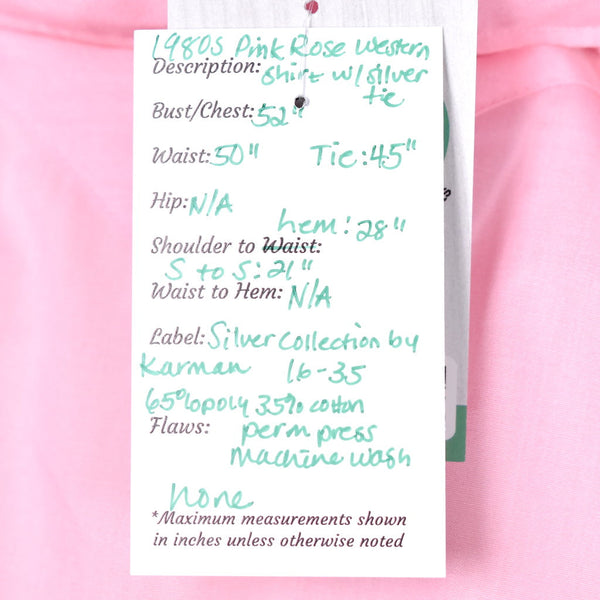 1980s Pink Rose Western
Description: Shirt w/silver
tie
Bust/Chest: 52"
Waist: 50" Tie: 45"
Hip: N/A
hem: 28"
Shoulder to Waist:
S to S: 21"
Waist to Hem: N/A
Label: Silver Collection by
Karman 16-35
65% poly 35% cotton
Flaws: perm press
machine wash
None
*Maximum measurements shown
in inches unless otherwise noted